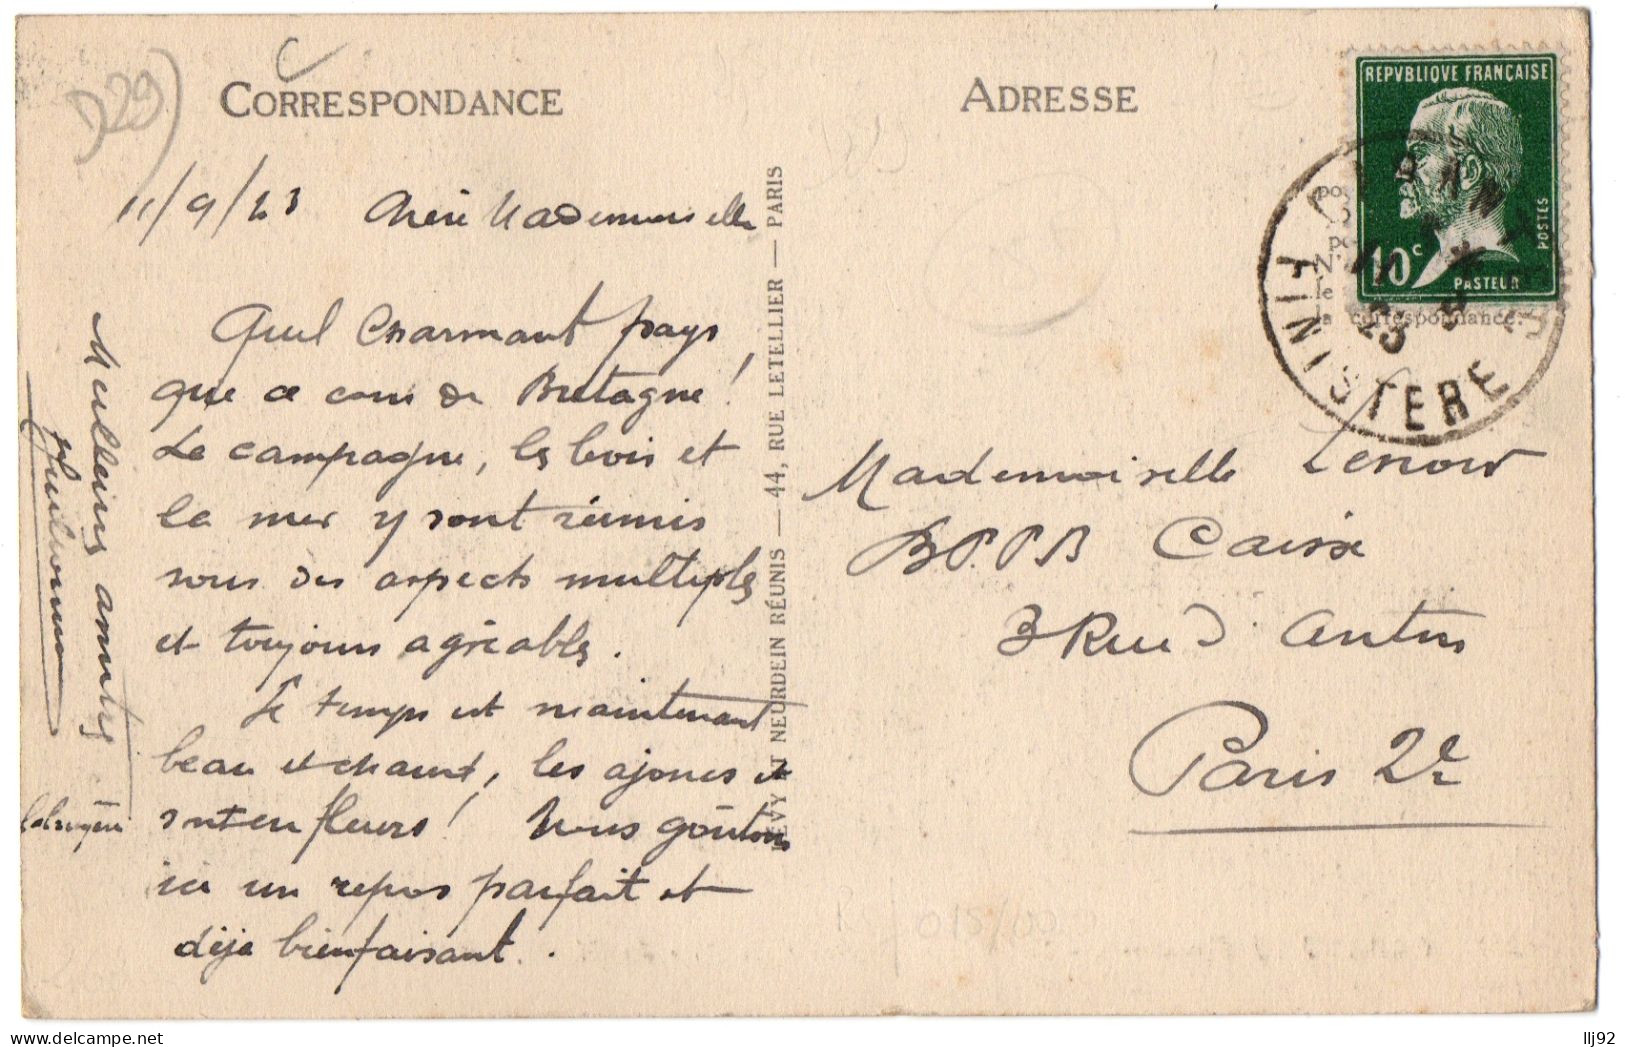 D29)
CORRESPONDANCE
11/9/23 Chère Mademoiselle
Quel Charmant pays
que ce coin de Bretagne!
La campagne, les bois et
la mer y sont réunis
sous des aspects multiples
et toujours agréables.
Le temps est maintenant
beau et chaud, les ajoncs
sont en fleurs! Nous goûtons
ici un repos parfait et
déjà bienfaisant.
Meilleurs amitiés
LEVY ET NEURDEIN RÉUNIS — 44, RUE LETELLIER — PARIS
ADRESSE
REPVBLIQVE FRANÇAISE
POSTES
10c
PASTEUR
la correspondance.
23
FINISTERE
Mademoiselle Lenoir
BPPB Caisse
3 Rue d'Antin
Paris 2e
015/00
llj92